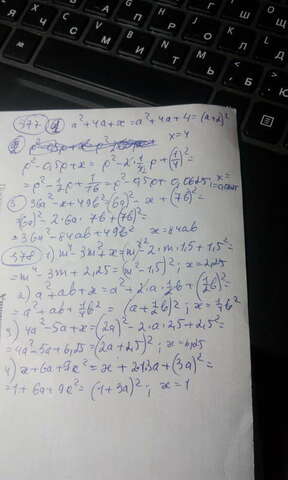 577 1) a²+4a+x=a²+4a+4=(a+2)²
x=4
p²-0,5p+x=p²-2·½p+(¼)²=
=p²-½p+1/16=p²-0,5p+0,0625; x=0,0625
3) 36a²-x+49b²=(6a)²-x+(7b)²=
(6a)²-2·6a·7b+(7b)²=
=36a²-84ab+49b² x=84ab
578 1) m⁴-3m²+x=(m²)²-2·m·1,5+1,5²=
=m⁴-3m+2,25=(m²-1,5)²; x=2,25
2) a²+ab+x=a²+2·a·½b+(½b)²=
=a²+ab+¼b²=(a+½b)²; x=¼b²
3) 4a²-5a+x=(2a)²-2·a·2,5+2,5²=
=4a²-5a+6,25=(2a+2,5)²; x=6,25
4) x+6a+9a²=x+2·1·3a+(3a)²=
=1+6a+9a²=(1+3a)²; x=1